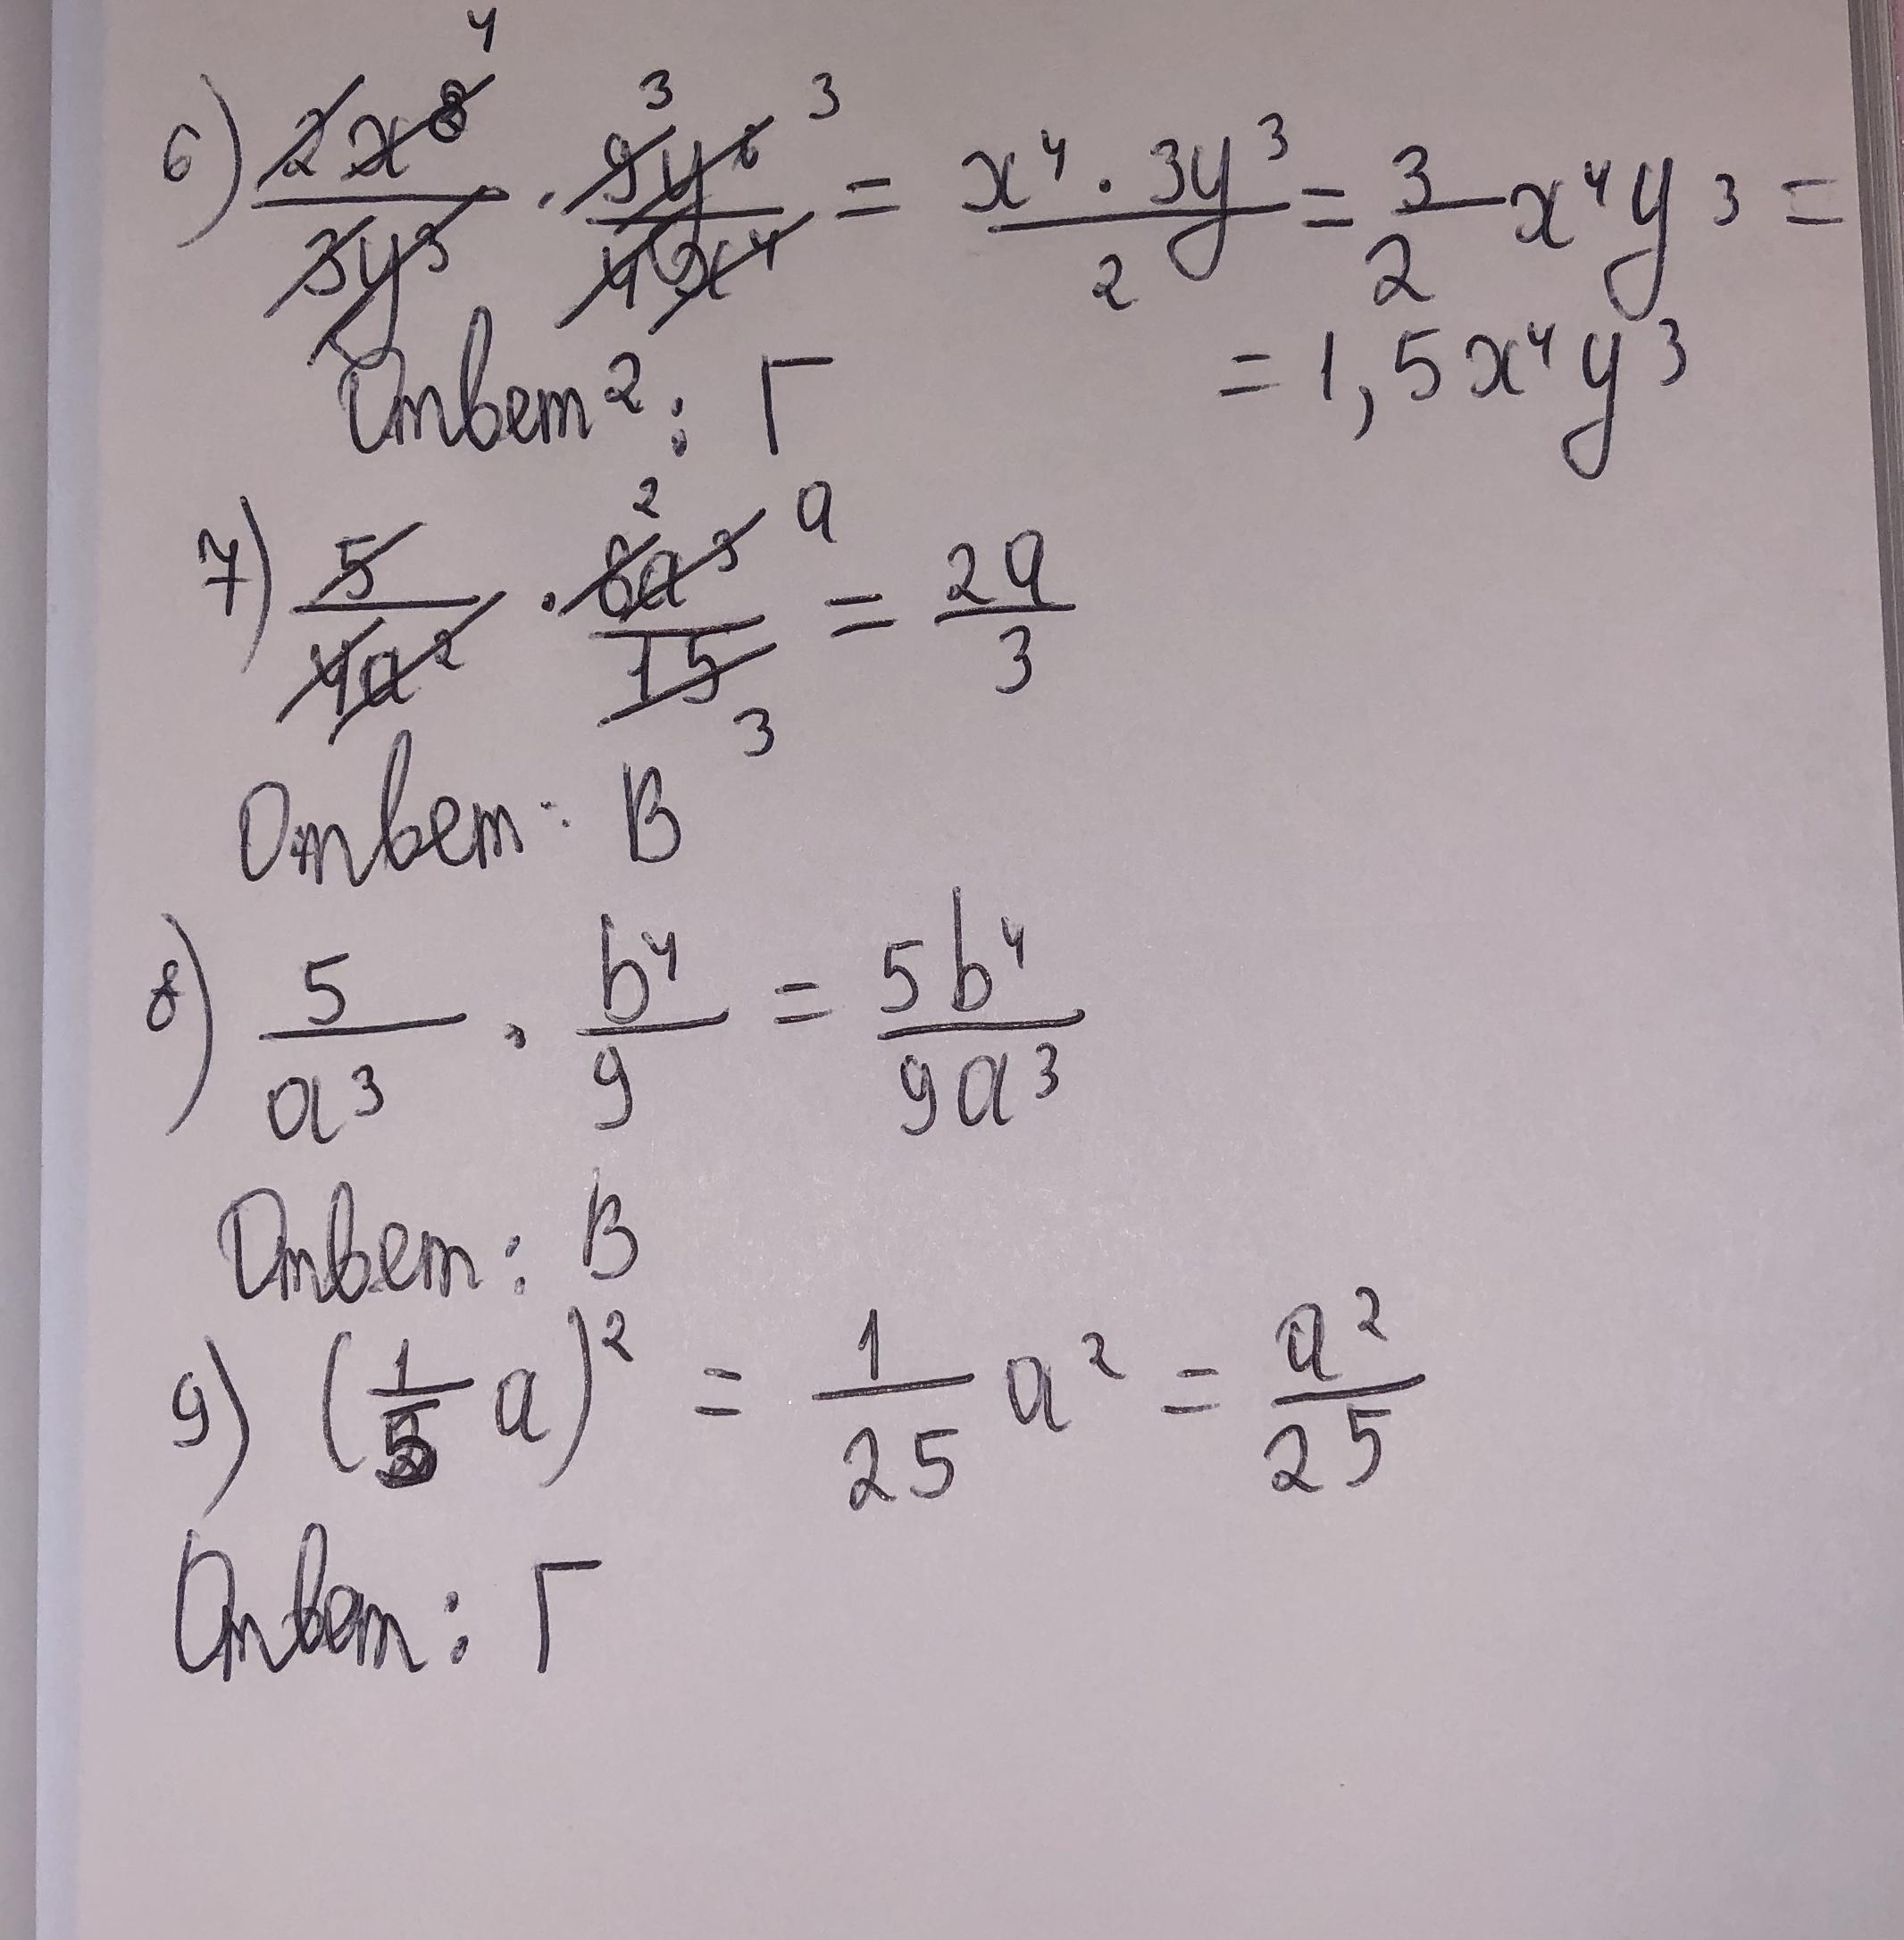 6) 2x⁸/3y³ · 9y⁶/4x⁴ = x⁴ · 3y³/2 = 3/2 x⁴y³ =
= 1,5x⁴y³
Ответ: Г
7) 5/4a² · 8a³/15 = 2a/3
Ответ: В
8) 5/a³ · b⁴/9 = 5b⁴/9a³
Ответ: В
9) (1/5 a)² = 1/25 a² = a²/25
Ответ: Г